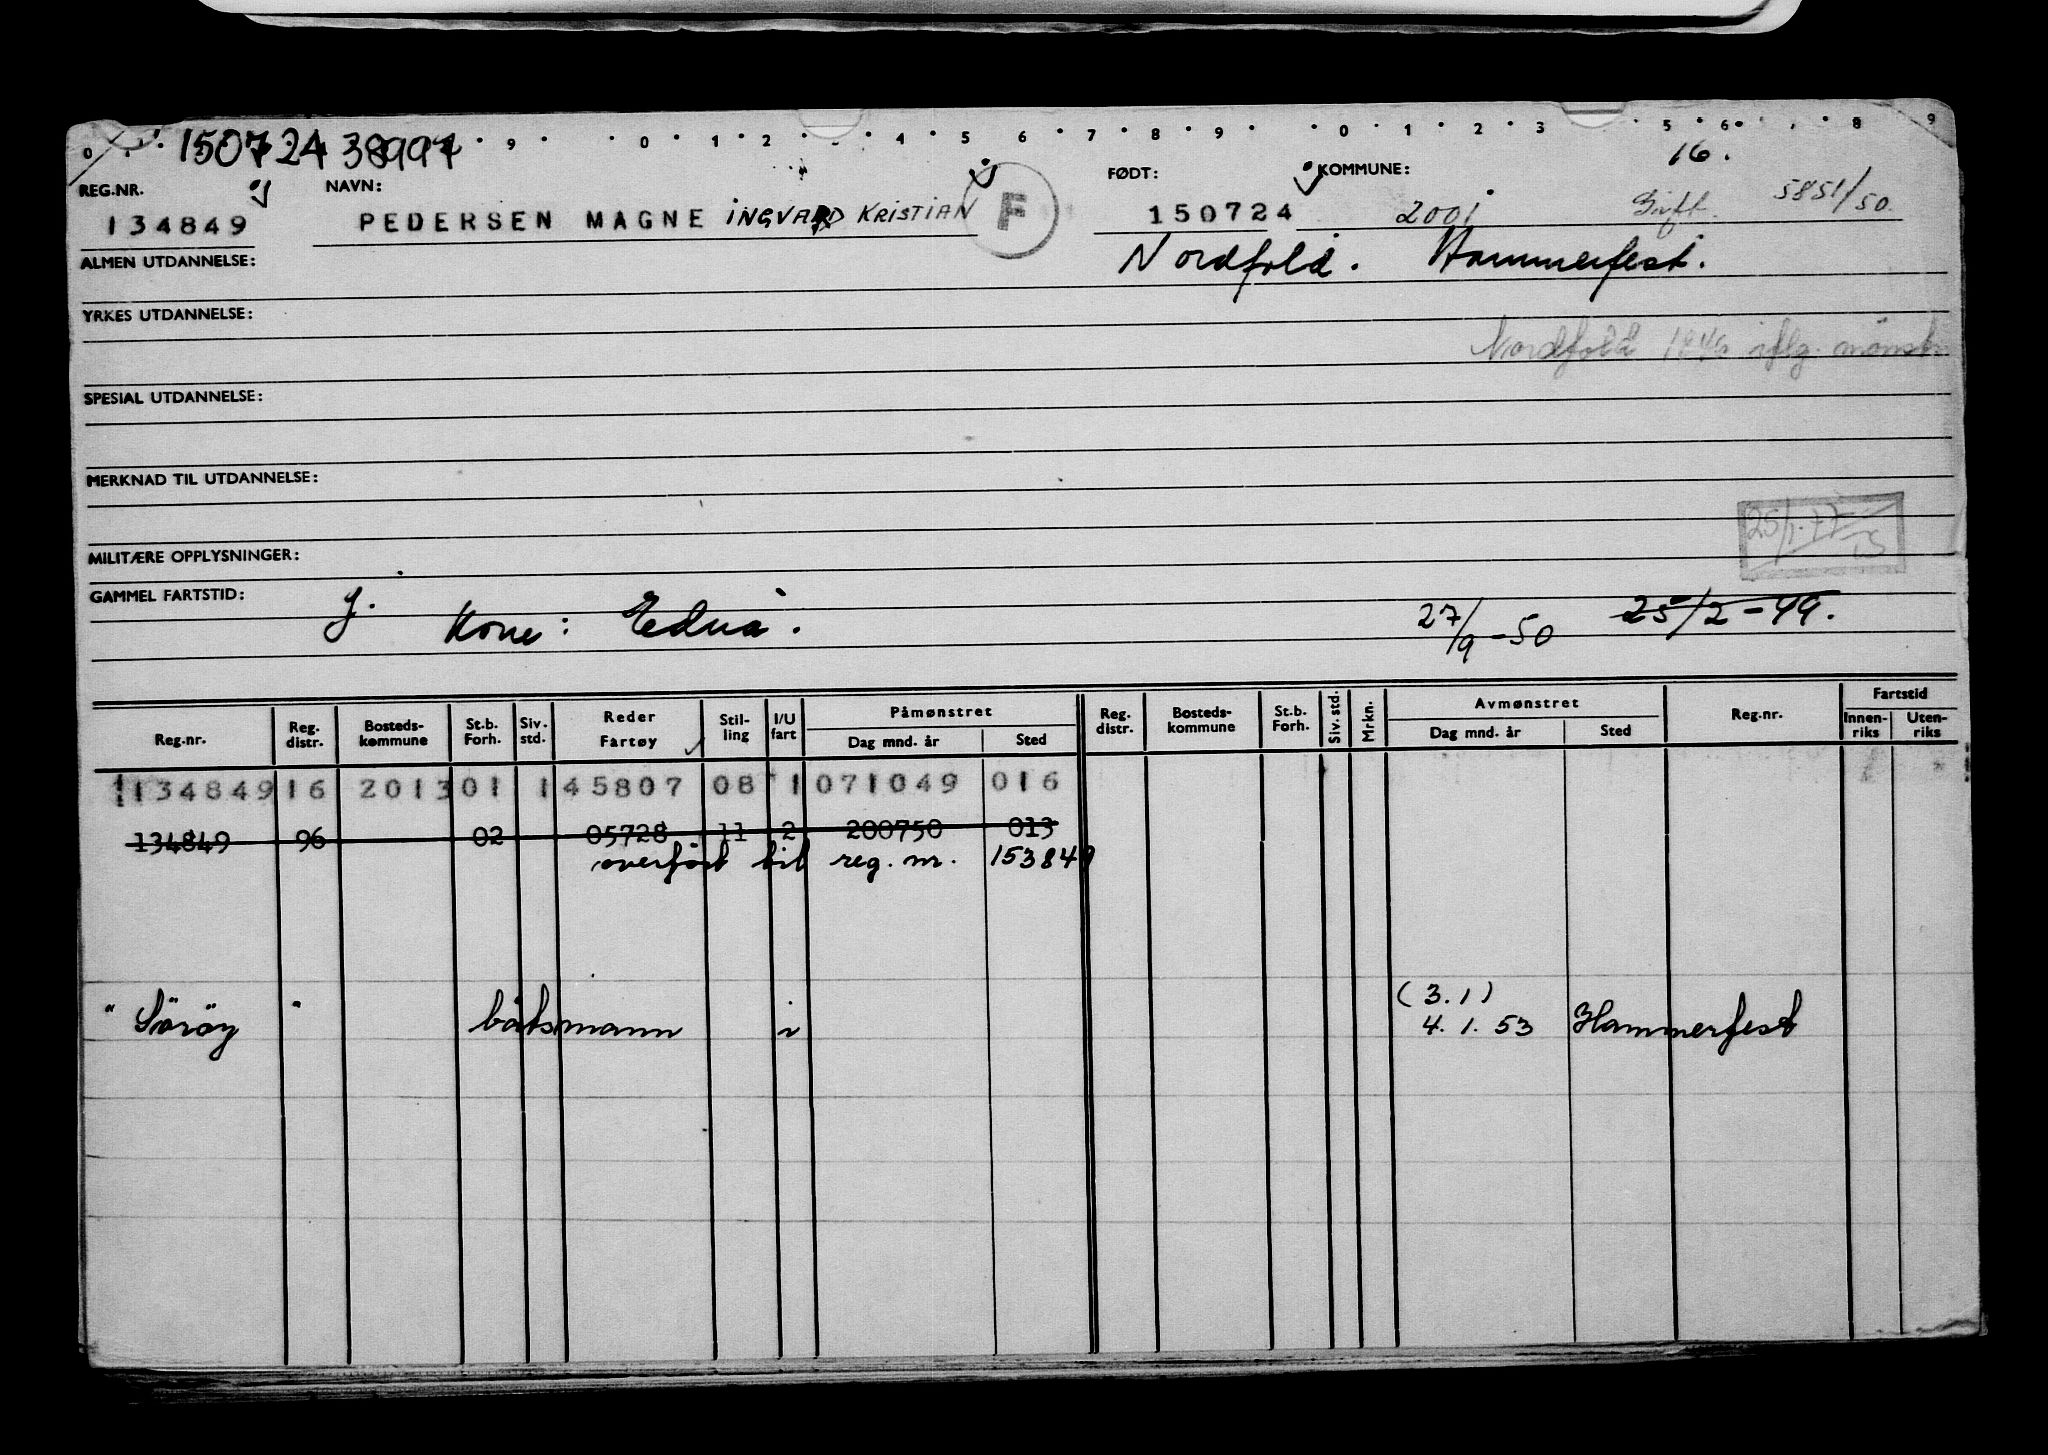 0 9 0 1 2 4 5 6 7 8 9 0 1 2 3 5 6 8 9
150724 38997
16.
REG.NR. NAVN: FØDT: KOMMUNE:
134849 PEDERSEN MAGNE INGVARD KRISTIAN F 150724 2001 Gift. 5851/50
ALMEN UTDANNELSE: Nordfold. Hammerfest.
YRKES UTDANNELSE:
Nordfold iflg. mønstr
SPESIAL UTDANNELSE:
MERKNAD TIL UTDANNELSE:
MILITÆRE OPPLYSNINGER:
GAMMEL FARTSTID:
j. Kone: Edna. 27/9-50 25/2-49.
Reg.nr. Reg. distr. Bosteds-kommune St.b. Forh. Siv. std. Reder Fartøy Stil-ling I/U fart Påmønstret Dag mnd. år Sted Reg. distr. Bosteds-kommune St.b. Forh. Siv. std. Mrkn. Avmønstret Dag mnd. år Sted Reg.nr. Fartstid Innen-riks Uten-riks
134849 16 2013 01 1 45807 08 1 071049 016
134849 96 02 05728 11 2 200750 013
overført til reg. nr. 153849
(3.1)
"Söröy" båtsmann i 4.1.53 Hammerfest